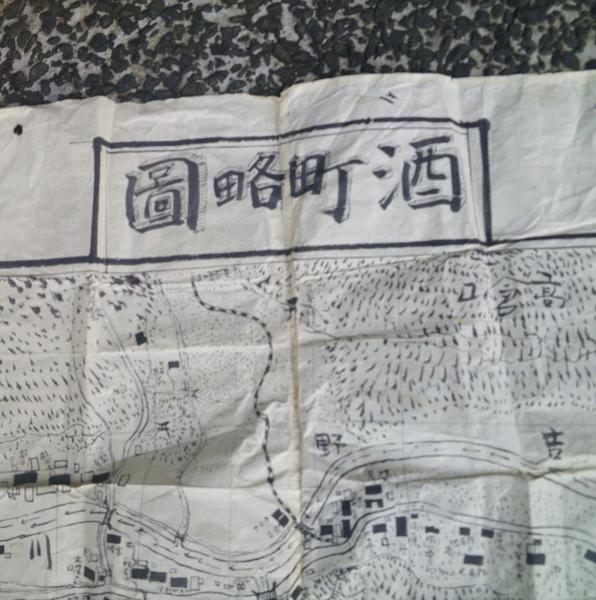 酒町略圖
高宮口
吉野